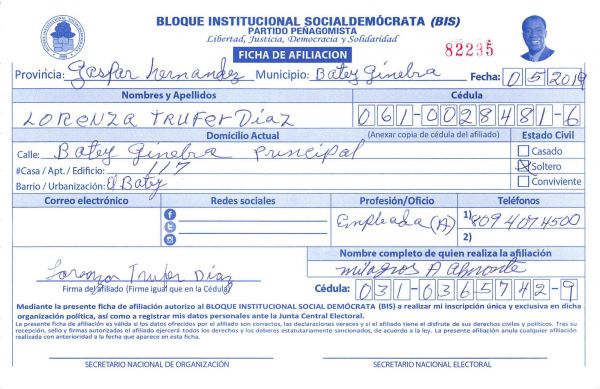 BLOQUE INSTITUCIONAL SOCIALDEMÓCRATA (BIS)
PARTIDO PEÑAGOMISTA
Libertad, Justicia, Democracia y Solidaridad
FICHA DE AFILIACION
82235
Provincia: Gaspar Hernandez Municipio: Batey Ginebra Fecha: 05 2019
Nombres y Apellidos Cédula
LORENZA TRUFER DÍAZ 061-0028481-6
Domicilio Actual (Anexar copia de cédula del afiliado) Estado Civil
Calle: Batey Ginebra Principal Casado
#Casa / Apt. / Edificio: 117 Soltero
Barrio / Urbanización: El Batey Conviviente
Correo electrónico Redes sociales Profesión/Oficio Teléfonos
Empleada (A) 1) 809 407 4500
2)
Nombre completo de quien realiza la afiliación
Lorenza Trufer Díaz milagros A Almonte
Firma del afiliado (Firme igual que en la Cédula) Cédula: 031-0365742-9
Mediante la presente ficha de afiliación autorizo al BLOQUE INSTITUCIONAL SOCIAL DEMÓCRATA (BIS) a realizar mi inscripción única y exclusiva en dicha
organización política, así como a registrar mis datos personales ante la Junta Central Electoral.
La presente ficha de afiliación es válida si los datos ofrecidos por el afiliado son correctos, las declaraciones veraces y si el afiliado tiene el disfrute de sus derechos civiles y políticos. Tras su
recepción, sello y firmas autorizadas el afiliado ejercerá todos los derechos y los deberes estatutariamente sancionados, de acuerdo a la ley. La presente afiliación anula cualquier afiliación
realizada con anterioridad a la fecha que aparece en esta ficha.
SECRETARIO NACIONAL DE ORGANIZACIÓN SECRETARIO NACIONAL ELECTORAL